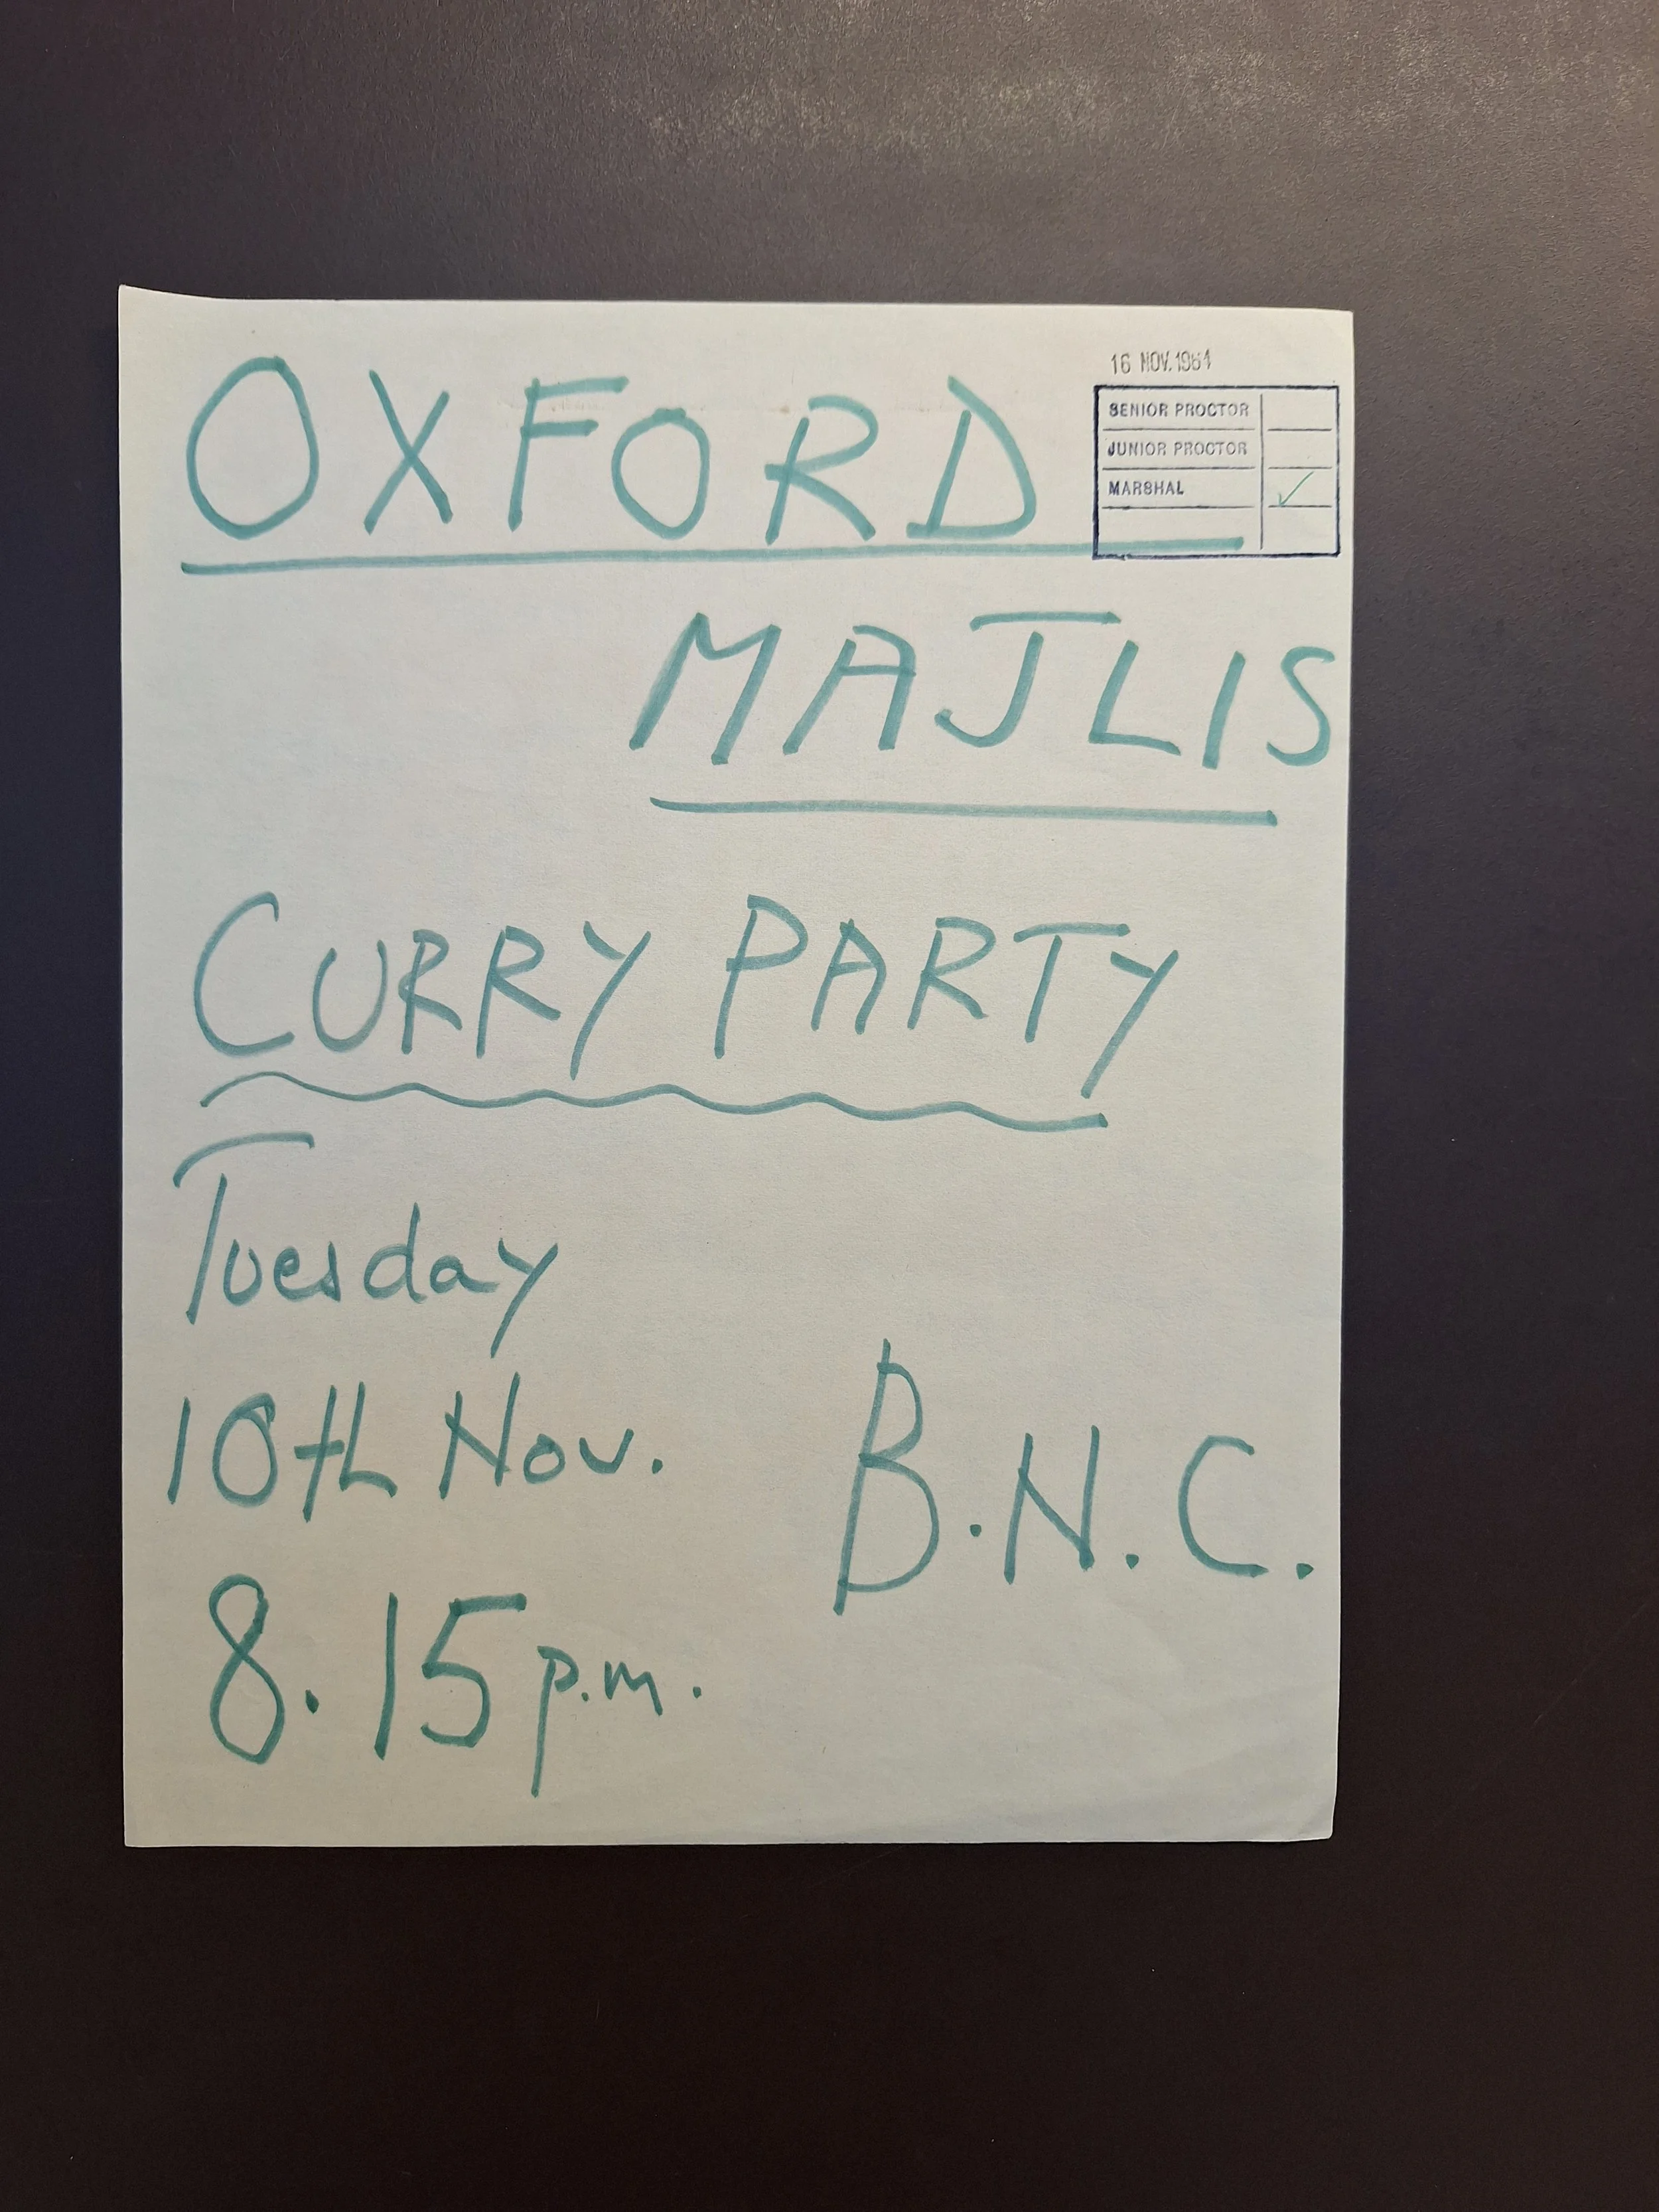 16 NOV. 1964
SENIOR PROCTOR
JUNIOR PROCTOR
MARSHAL ✓
OXFORD
MAJLIS
CURRY PARTY
Tuesday
10th Nov.
B.N.C.
8.15 p.m.